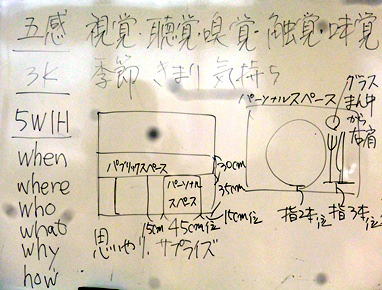 五感 視覚・聴覚・嗅覚・触覚・味覚
3K 季節 きまり 気持ち
5W1H
when
where
who
what
why
how
パブリックスペース
パーソナルスペース
30cm
35cm
15cm
45cm位
15cm位
思いやり. サプライズ
パーソナルスペース
グラス
まん中
から
右肩
指2本位
指3本位